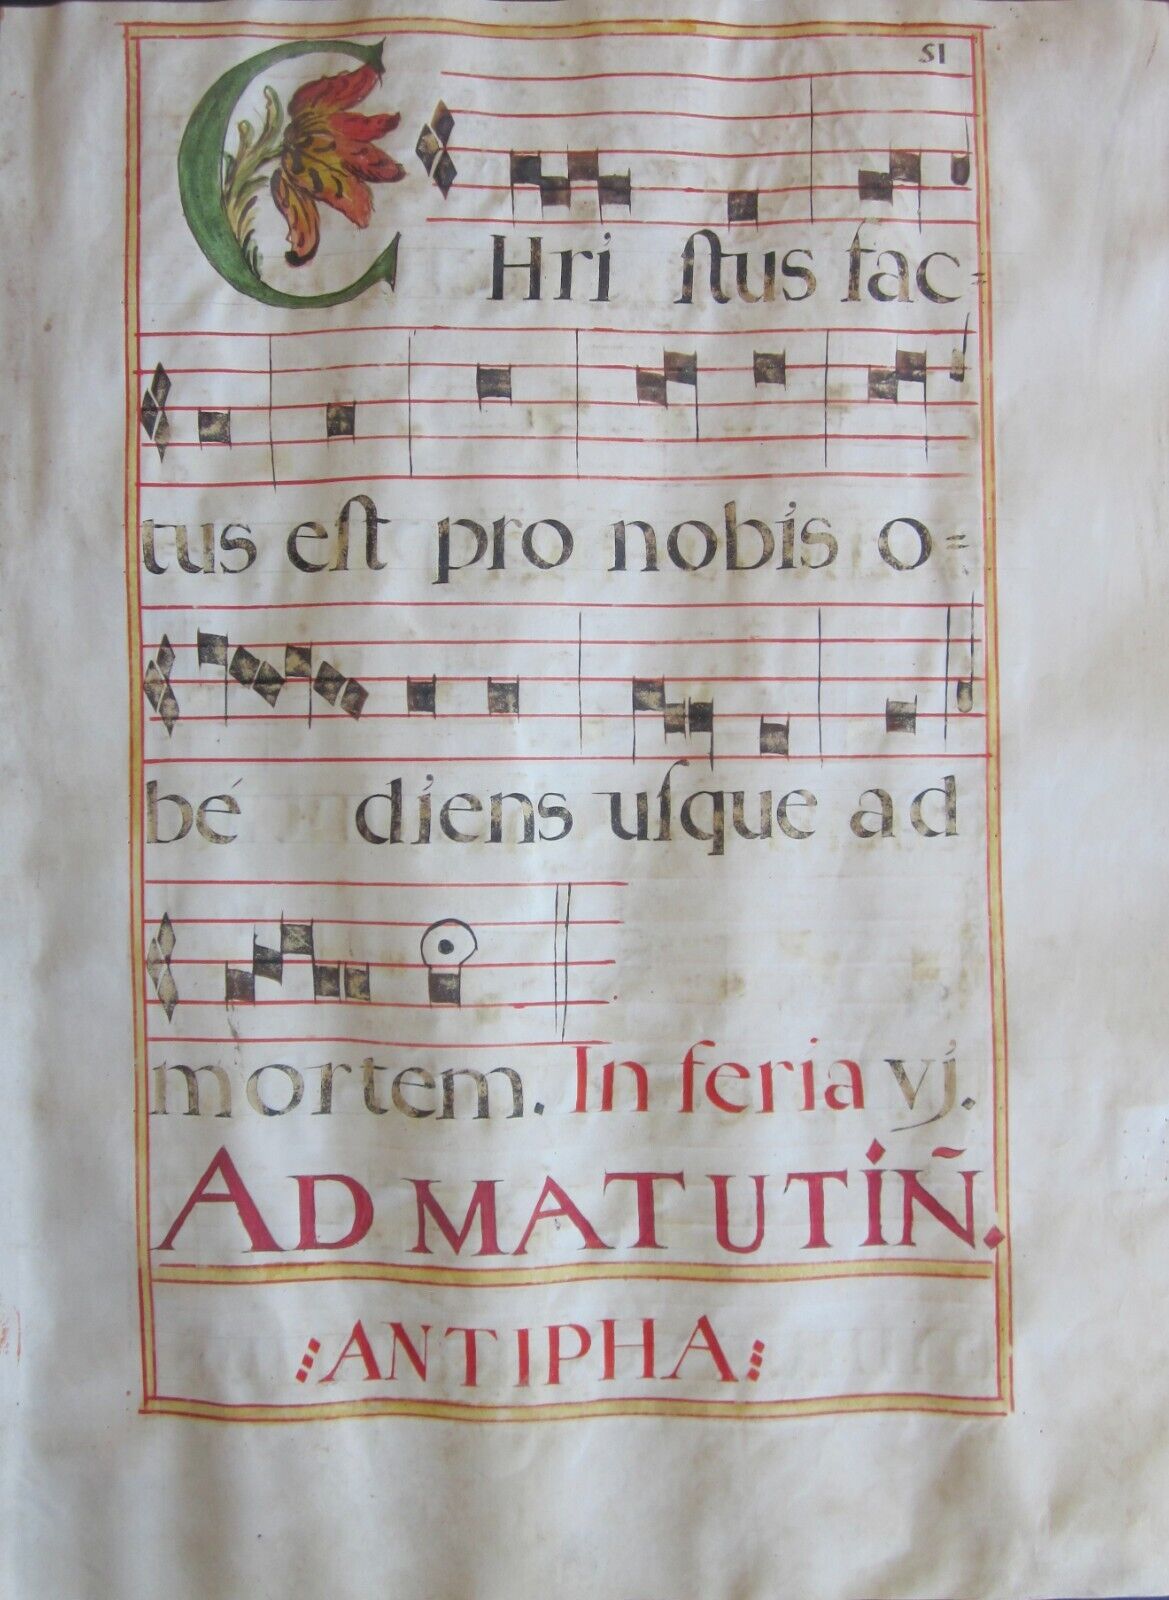 51
CHri stus fac=
tus est pro nobis o=
bé diens usque ad
mortem. In feria vj.
AD MATUTIÑ.
ANTIPHA